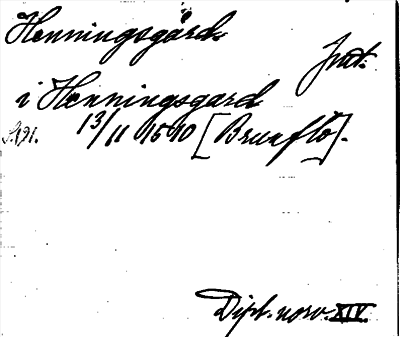 Henningsgård.
Jmt.
i Henningsgard
S. 191. 13/11 1540 [Brunflo].
Dipl. norv. XIV.